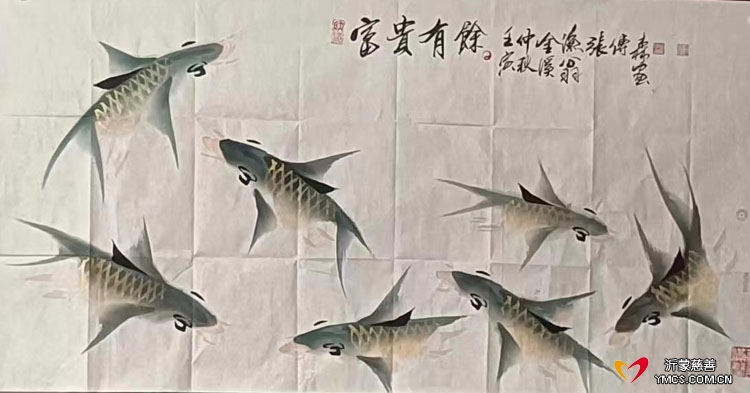 富貴有餘
壬寅仲秋金溪漁翁張傳森畫
沂蒙慈善
YMCS.COM.CN